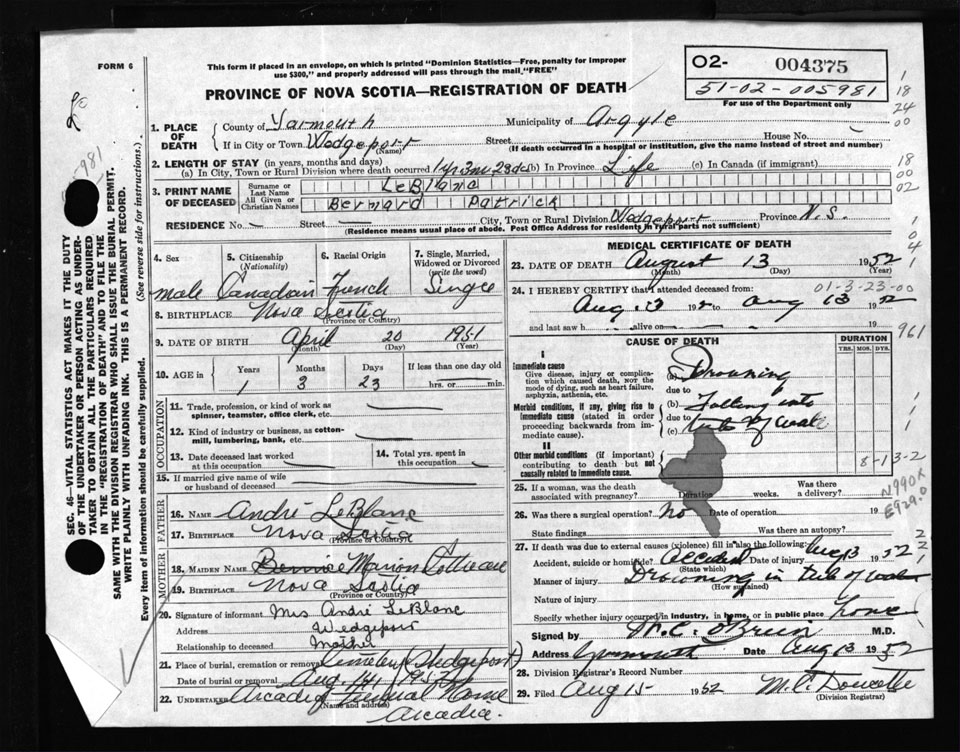 FORM 6
This form if placed in an envelope, on which is printed "Dominion Statistics—Free, penalty for improper
use $300," and properly addressed will pass through the mail "FREE"
PROVINCE OF NOVA SCOTIA—REGISTRATION OF DEATH
O2- 004375
51-02-005981
For use of the Department only
1. PLACE OF DEATH
County of Yarmouth Municipality of Argyle
If in City or Town Wedgeport (Name) Street House No.
(If death occurred in a hospital or institution, give the name instead of street and number)
2. LENGTH OF STAY (in years, months and days)
(a) In City, Town or Rural Division where death occurred 1yr 3m 23ds (b) In Province Life (c) In Canada (if immigrant)
3. PRINT NAME OF DECEASED
Surname or Last Name LeBlanc
All Given or Christian Names Bernard Patrick
RESIDENCE No. Street City, Town or Rural Division Wedgeport Province N.S.
(Residence means usual place of abode. Post Office Address for residents in rural parts not sufficient)
4. Sex 5. Citizenship (Nationality) 6. Racial Origin 7. Single, Married, Widowed or Divorced (write the word)
Male Canadian French Single
8. BIRTHPLACE Nova Scotia
(Province or Country)
9. DATE OF BIRTH April 20 1951
(Month) (Day) (Year)
10. AGE in Years Months Days If less than one day old
1 3 23 hrs. or min.
OCCUPATION
11. Trade, profession, or kind of work as
spinner, teamster, office clerk, etc.
12. Kind of industry or business, as cotton-
mill, lumbering, bank, etc.
13. Date deceased last worked
at this occupation
14. Total yrs. spent in
this occupation
15. If married give name of wife
or husband of deceased
FATHER
16. NAME Andre LeBlanc
17. BIRTHPLACE Nova Scotia
(Province or Country)
MOTHER
18. MAIDEN NAME Bennie Marion Pottie
19. BIRTHPLACE Nova Scotia
(Province or Country)
20. Signature of informant Mrs André LeBlanc
Address Wedgeport
Relationship to deceased Mother
21. Place of burial, cremation or removal Cemetery (Wedgeport)
Date of burial or removal Aug. 14, 1952
22. UNDERTAKER Arcadia Funeral Home
(Name and address)
Arcadia.
MEDICAL CERTIFICATE OF DEATH
23. DATE OF DEATH August 13 1952
(Month) (Day) (Year)
24. I HEREBY CERTIFY that I attended deceased from: 01-3-23-00
Aug 13 19 to Aug 13 1952
and last saw h alive on 19
961
CAUSE OF DEATH
DURATION
YRS. MOS. DYS.
I
Immediate cause
Give disease, injury or complication which caused death, NOT the mode of dying, such as heart failure, asphyxia, asthenia, etc.
(a) Drowning
due to
(b) Falling into
due to
(c) tub of water
Morbid conditions, if any, giving rise to immediate cause (stated in order proceeding backwards from immediate cause).
II
Other morbid conditions (if important) contributing to death but not causally related to immediate cause.
8-13-2
25. If a woman, was the death
associated with pregnancy? Duration weeks. Was there a delivery?
N990X
E929.0
26. Was there a surgical operation? No Date of operation 19
State findings Was there an autopsy?
27. If death was due to external causes (violence) fill in also the following:
Accident, suicide or homicide? Accident Date of injury Aug 13 1952
(State which)
Manner of injury Drowning in tub of water
(How sustained)
Nature of injury
Specify whether injury occurred in industry, in home, or in public place home
Signed by M.C. O'Brien M.D.
Address Yarmouth Date Aug 13 1952
28. Division Registrar's Record Number
29. Filed Aug 15 1952 M.C. Doucette
(Division Registrar)
SEC. 46—VITAL STATISTICS ACT MAKES IT THE DUTY
OF THE UNDERTAKER OR PERSON ACTING AS UNDER-
TAKER TO OBTAIN ALL THE PARTICULARS REQUIRED
IN THE "REGISTRATION OF DEATH" AND TO FILE THE
SAME WITH THE DIVISION REGISTRAR WHO SHALL ISSUE THE BURIAL PERMIT.
WRITE PLAINLY WITH UNFADING INK. THIS IS A PERMANENT RECORD.
Every item of information should be carefully supplied. (See reverse side for instructions.)